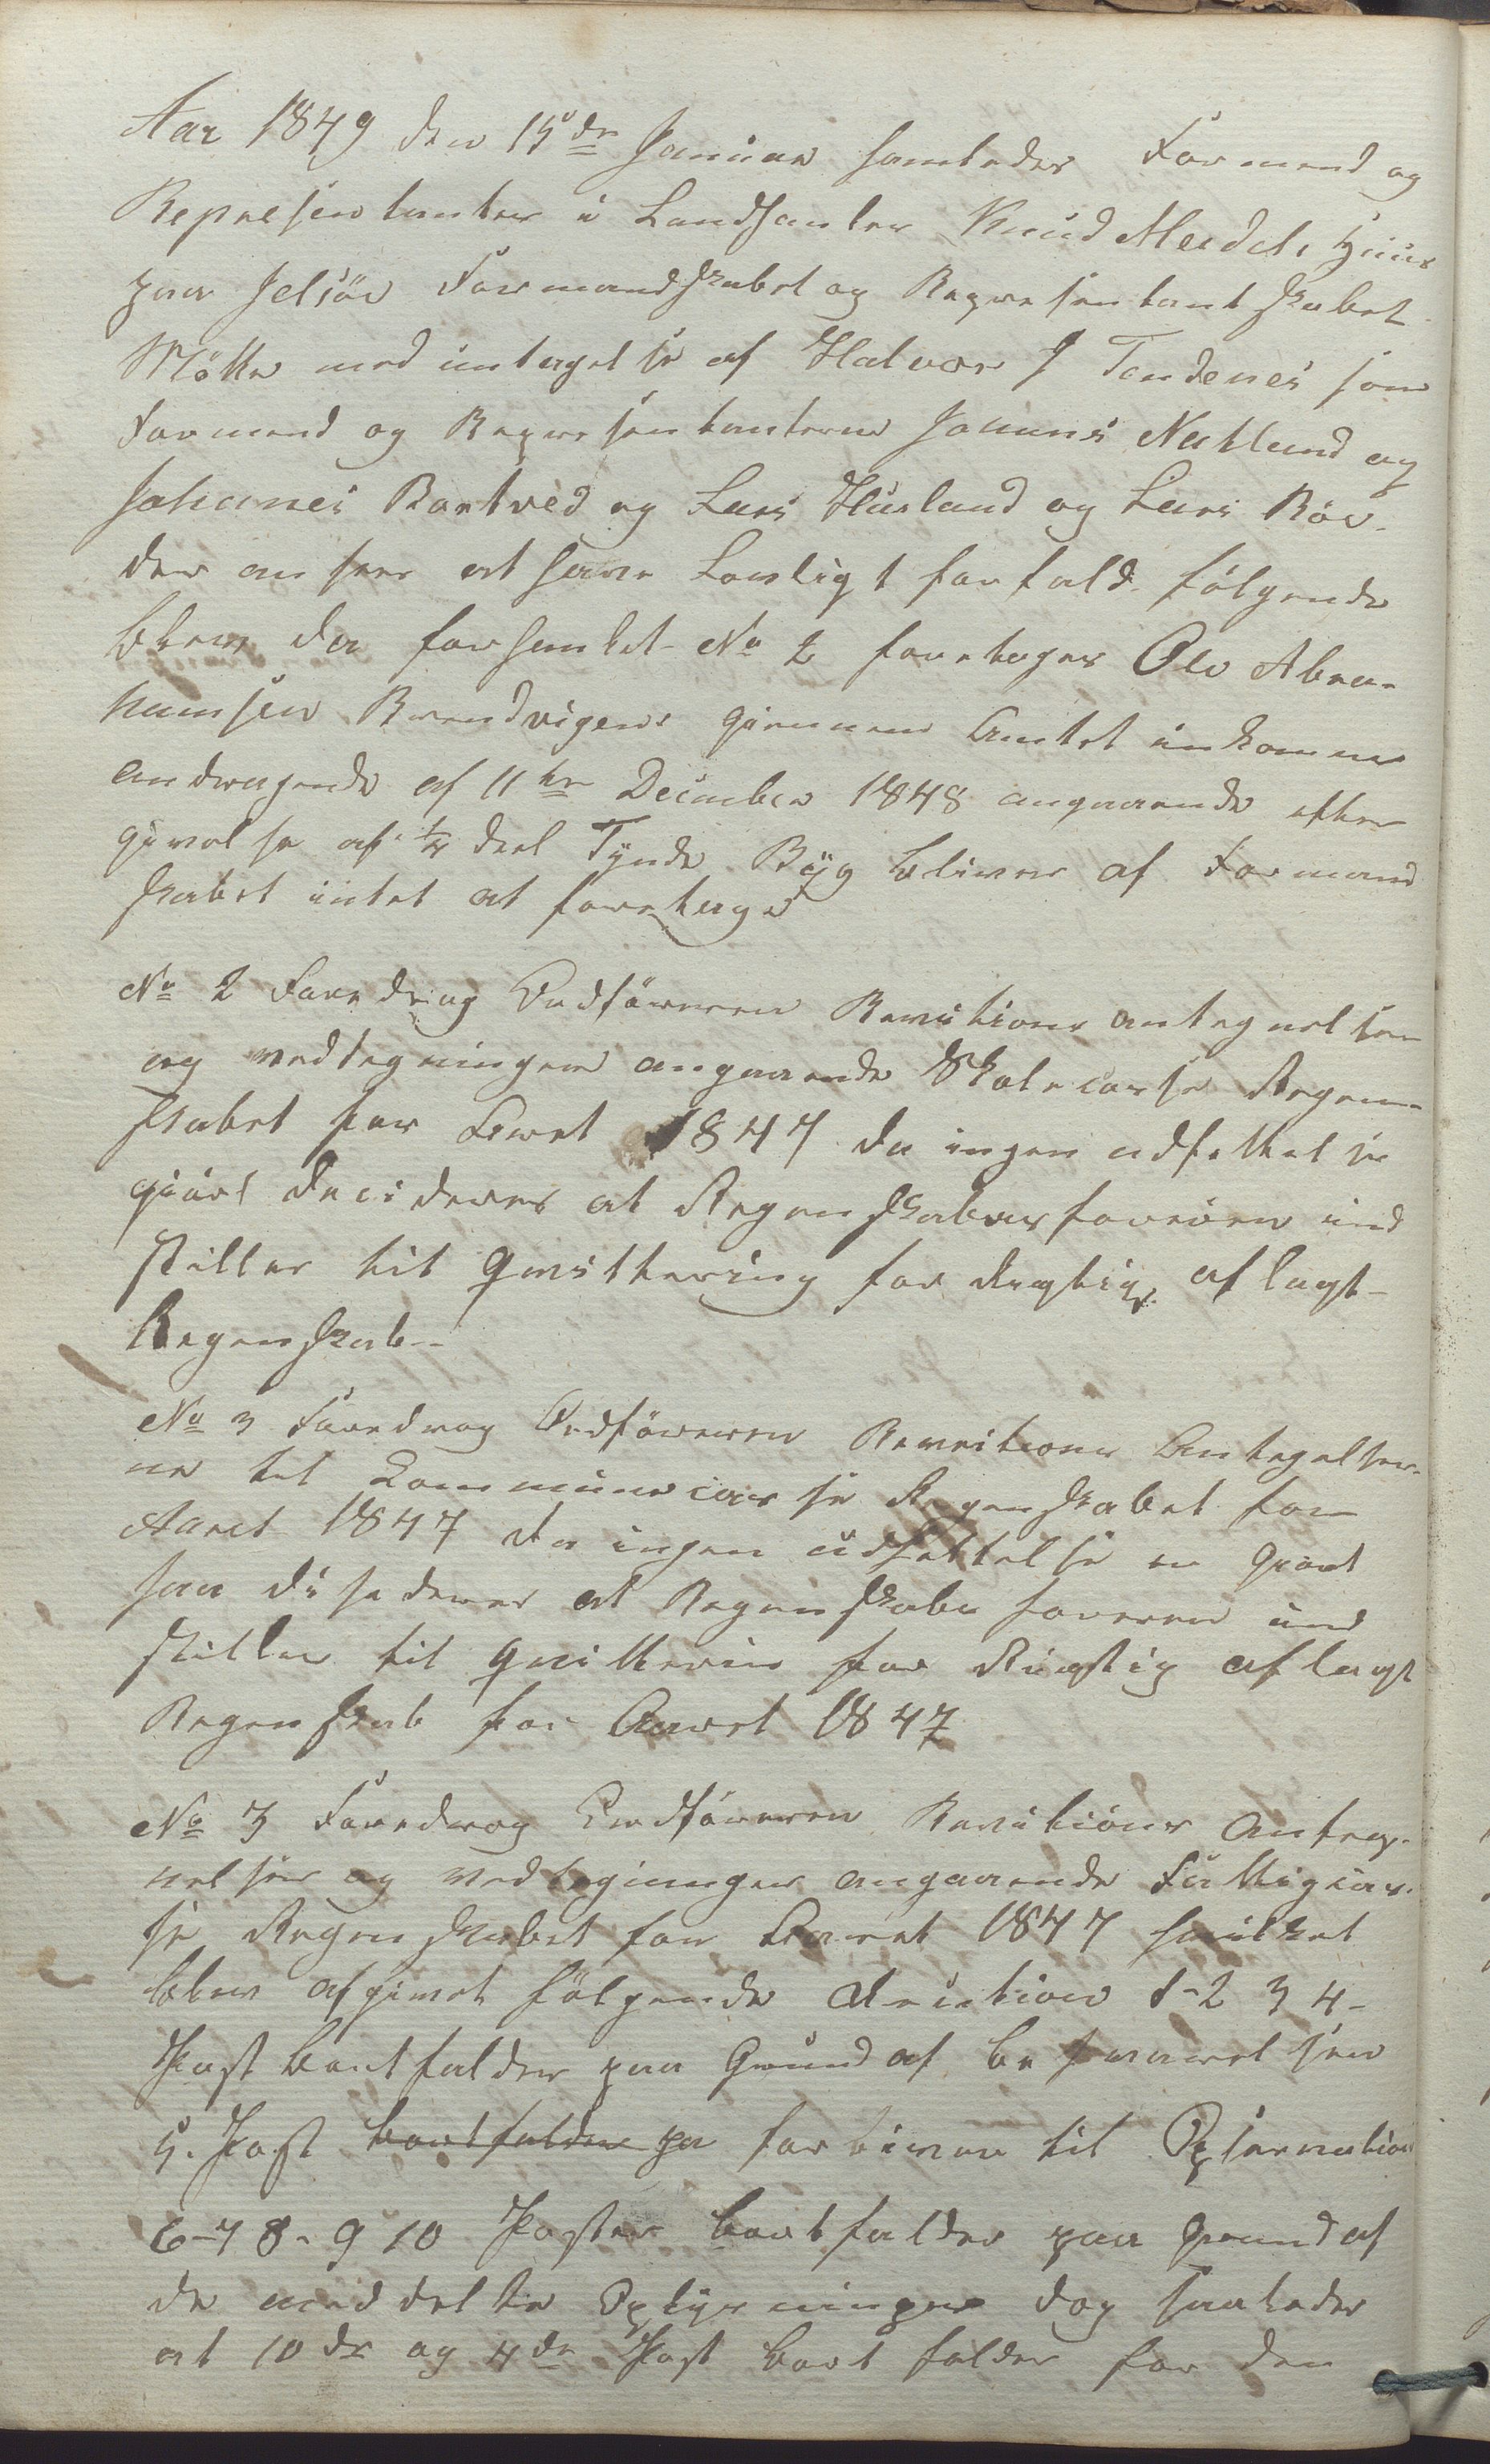 Aar 1849 den 15de Januar samledes Formend og
Represententer i Landhanler Knud Huus
paa Jelsöe Formandskabet og Representantskabet
Mötte med untagelse af Halvor J Tendenes som
Formend og Representanterne Johanis Natland og
Johanes Bartved og Lars Husland og Lars Röe
der anseer at have Lovligt forfald. fölgende
blev da forhanlet No 2 foretoges Ole Abra-
hamsen Brendvigens giennem Amtet inkomne
andragende af 11te December 1848 angaaende efter
givelse af 1/4 deel Tynde Byg bliver af Formand
skabet intet at foretage
No 2 Foredrog Ordföreren Revitions antegnelser
og vedtegninger angaaende Skolecasse Regen-
skabet for Aaret 1847 da ingen udsettelse
giört decideres at Regenskabsforeren ind
stilles til Qvittering for Rigtig aflagt
Regenskab
No 3 Foredrog Ordföreren Revitions Antegelser-
ne tel Communecasse Regenskabet for
Aaret 1847 da ingen udsettelse er giort
saa disederes at Regenskabs foreren ind
stilles til Quitterin for Rigtig aflagt
Regenskab for Aaret 1847
No 3 Foredrog Ordföreren Revitions Anteg-
nelser og vedtegninger angaaende Fattigcas-
se Regenskabet for Aaret 1847 hvilket
blev afgivet fölgende decition 1-2 3 4-
Post bortfalder paa Grund af besvarelsen
5. Post bortfalder pa forbiver til Opservation
6-7 8-9 10 Poster bortfalder paa Grund af
de meddelte Oplysninger dog saaledes
at 10de og 4de Post bort falder for den